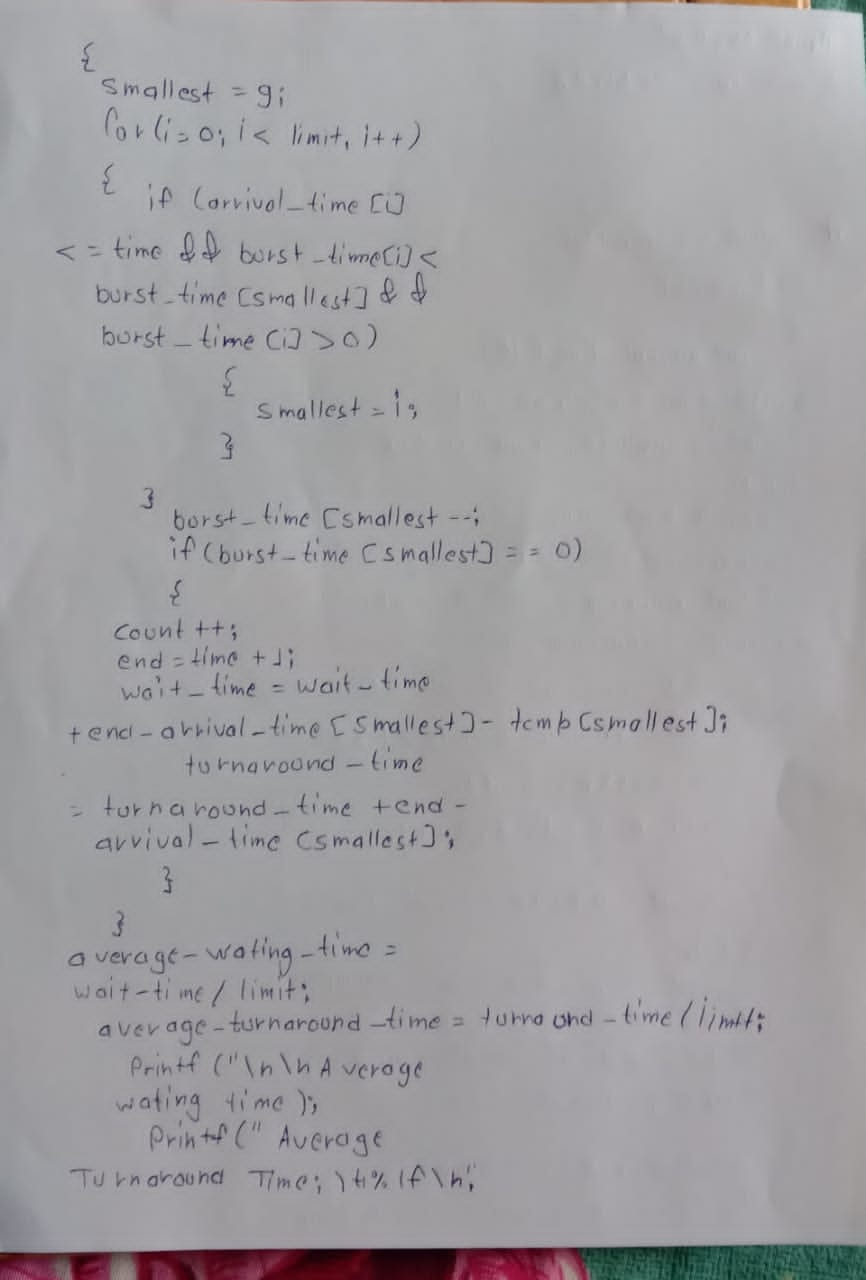 {
smallest = 9;
for(i=0; i< limit, i++)
{ if (arrival_time [i]
<= time && burst_time[i]<
burst_time [smallest] &&
burst_time [i] >0)
{
smallest = i;
}
}
burst_time [smallest --;
if (burst_time [smallest] == 0)
{
count ++;
end = time + 1;
wait_time = wait_time
+ end - arrival_time [smallest] - temp [smallest];
turnaround_time
= turnaround_time + end -
arrival_time [smallest];
}
}
average_wating_time =
wait-time / limit;
average_turnaround_time = turnaound_time / limit;
Printf ("\n\n Average
wating time );
Printf (" Average
Turnaround Time; \t%lf\n;